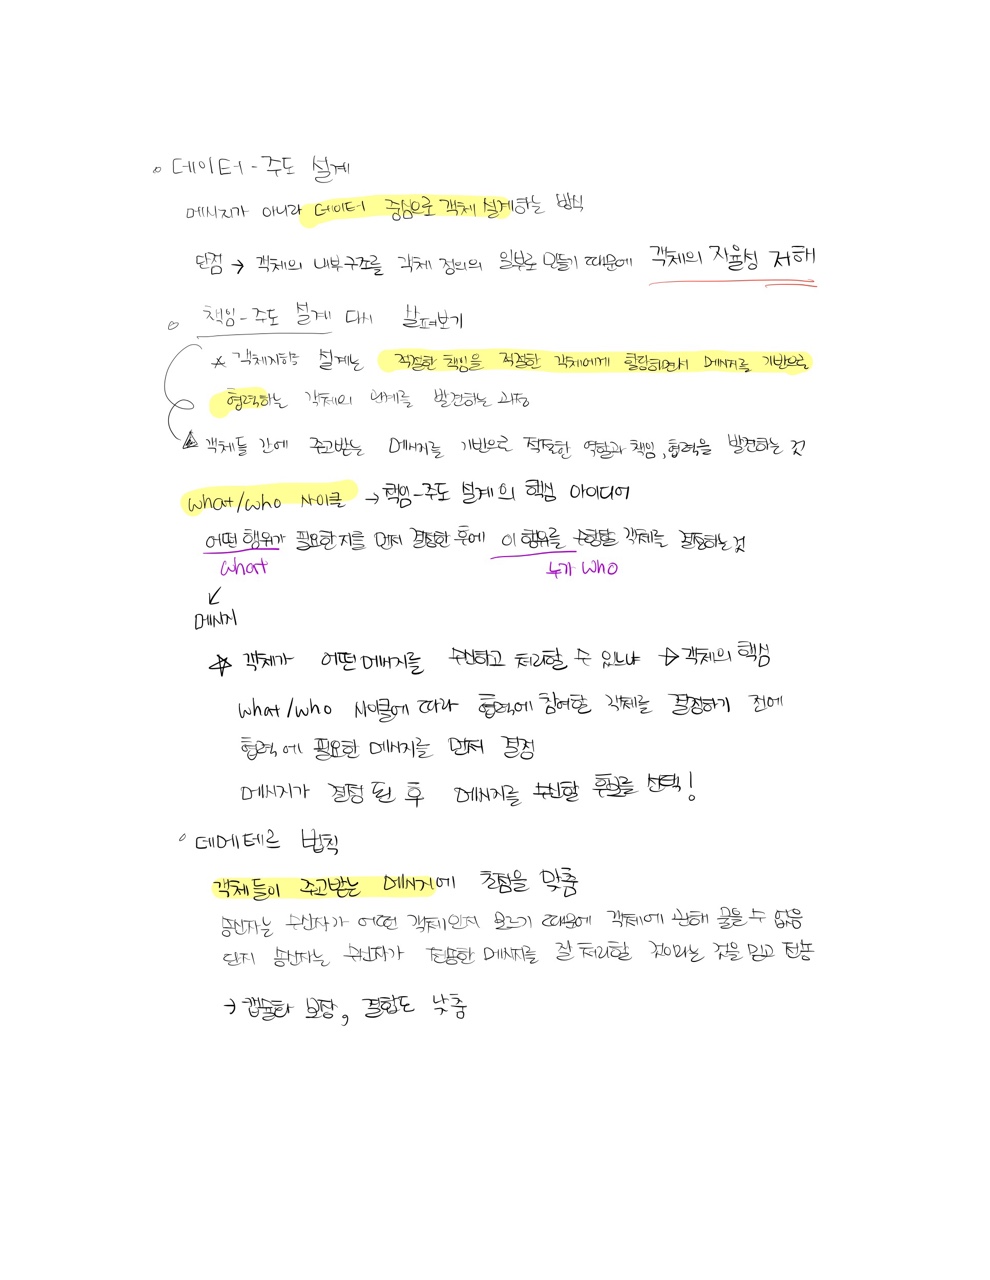 데이터-주도 설계
메시지가 아니라 데이터 중심으로 객체 설계하는 방식
단점 → 객체의 내부구조를 객체 정의의 일부로 만들기 때문에 객체의 자율성 저해
책임-주도 설계 다시 살펴보기
☆ 객체지향 설계는 적절한 책임을 적절한 객체에게 할당하면서 메시지를 기반으로
협력하는 객체의 관계를 발견하는 과정
객체들 간에 주고받는 메시지를 기반으로 적절한 역할과 책임, 협력을 발견하는 것
what/who 사이클 → 책임-주도 설계의 핵심 아이디어
어떤 행위가 필요한지를 먼저 결정한 후에 이 행위를 수행할 객체를 결정하는 것
what 누가 who
↙
메시지
☆ 객체가 어떤 메시지를 수신하고 처리할 수 있느냐 → 객체의 핵심
what/who 사이클에 따라 협력에 참여할 객체를 결정하기 전에
협력에 필요한 메시지를 먼저 결정
메시지가 결정 된 후 메시지를 수신할 후보를 선택!
데메테르 법칙
객체들이 주고받는 메시지에 초점을 맞춤
송신자는 수신자가 어떤 객체인지 모르기 때문에 객체에 관해 물을 수 없음
단지 송신자는 수신자가 전송한 메시지를 잘 처리할 것이라는 것을 믿고 전송
→ 캡슐화 보장, 결합도 낮춤